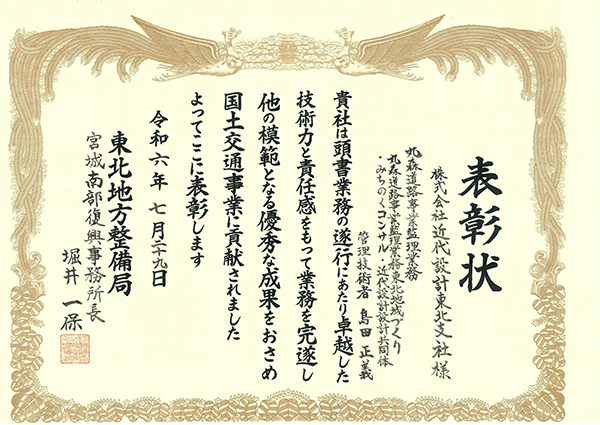 表彰状
株式会社近代設計東北支社様
丸森道路事業監理業務
丸森道路事業監理業務東北地域づくり
・みちのくコンサル・近代設計設計共同体
管理技術者 島田正義
貴社は頭書業務の遂行にあたり卓越した
技術力と責任感をもって業務を完遂し
他の模範となる優秀な成果をおさめ
国土交通事業に貢献されました
よってここに表彰します
令和六年七月二十九日
東北地方整備局
宮城南部復興事務所長
堀井一保